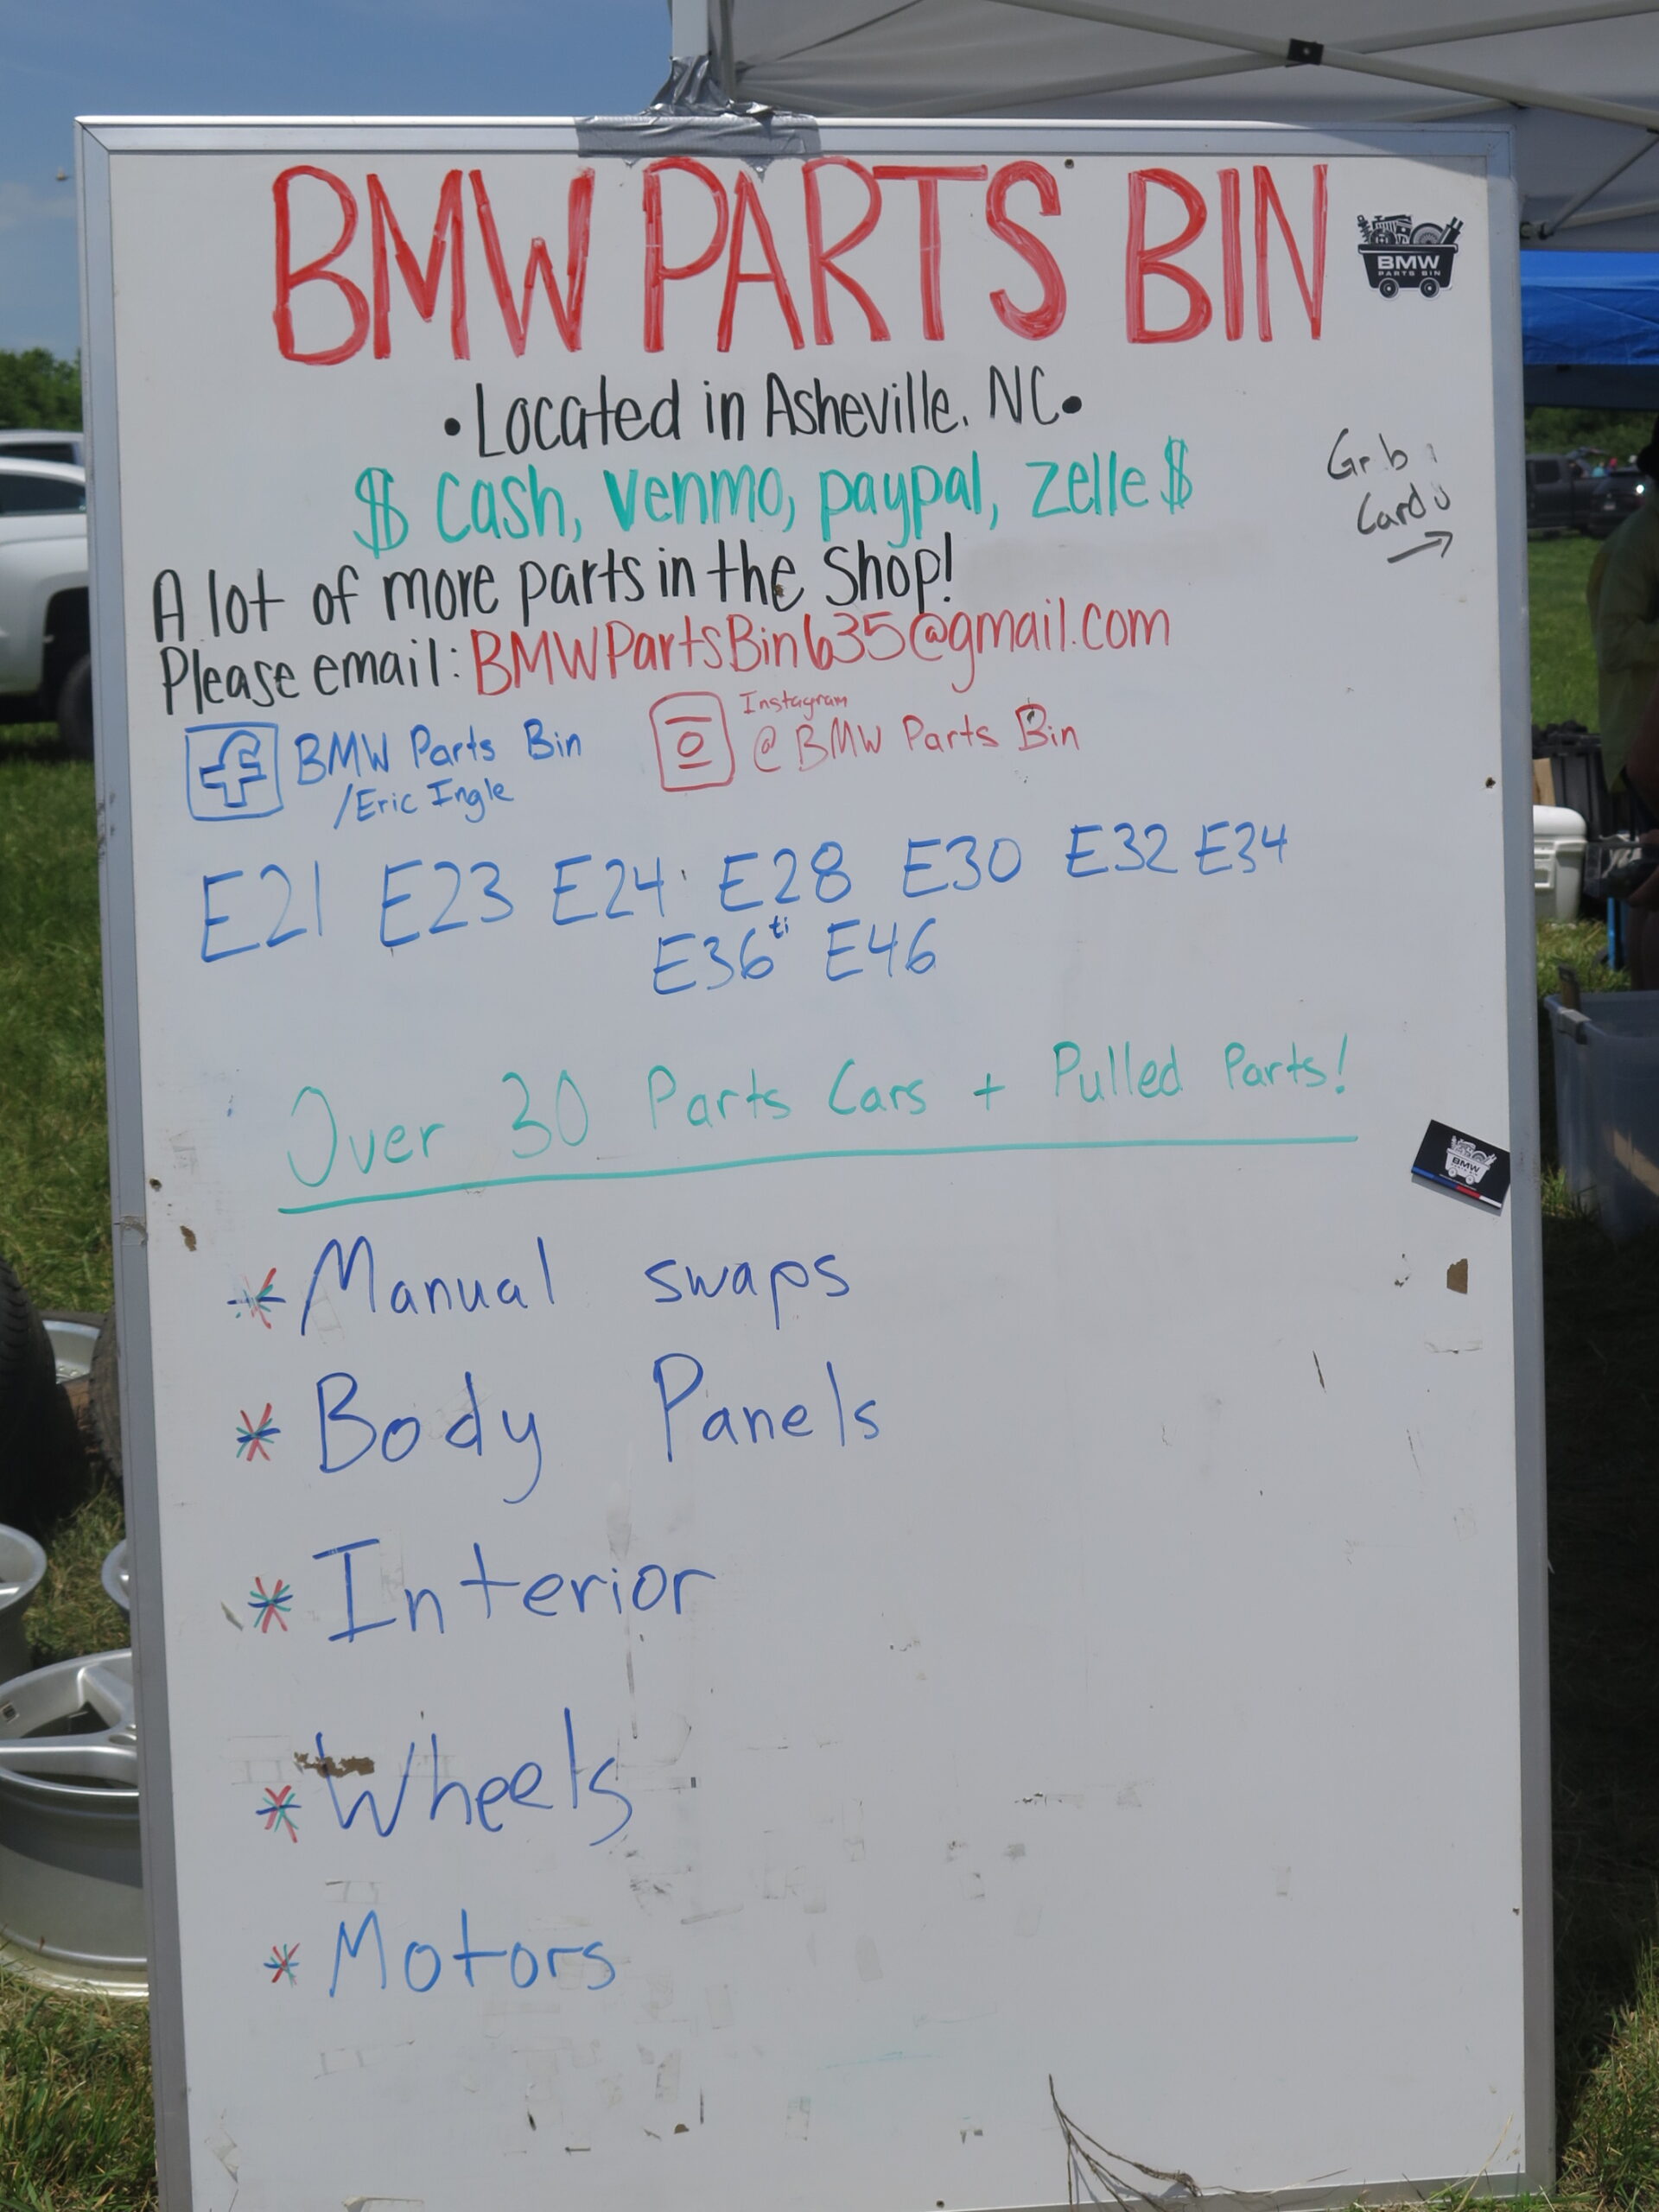 BMW PARTS BIN
BMW
PARTS BIN
• Located in Asheville, NC •
$ cash, venmo, paypal, zelle $
Card
A lot of more parts in the Shop!
Please email: BMWPartsBin635@gmail.com
f BMW Parts Bin
/Eric Ingle
Instagram
@ BMW Parts Bin
E21 E23 E24 E28 E30 E32 E34
E36 ti E46
Over 30 Parts Cars + Pulled Parts!
BMW
* Manual swaps
* Body Panels
* Interior
* Wheels
* Motors